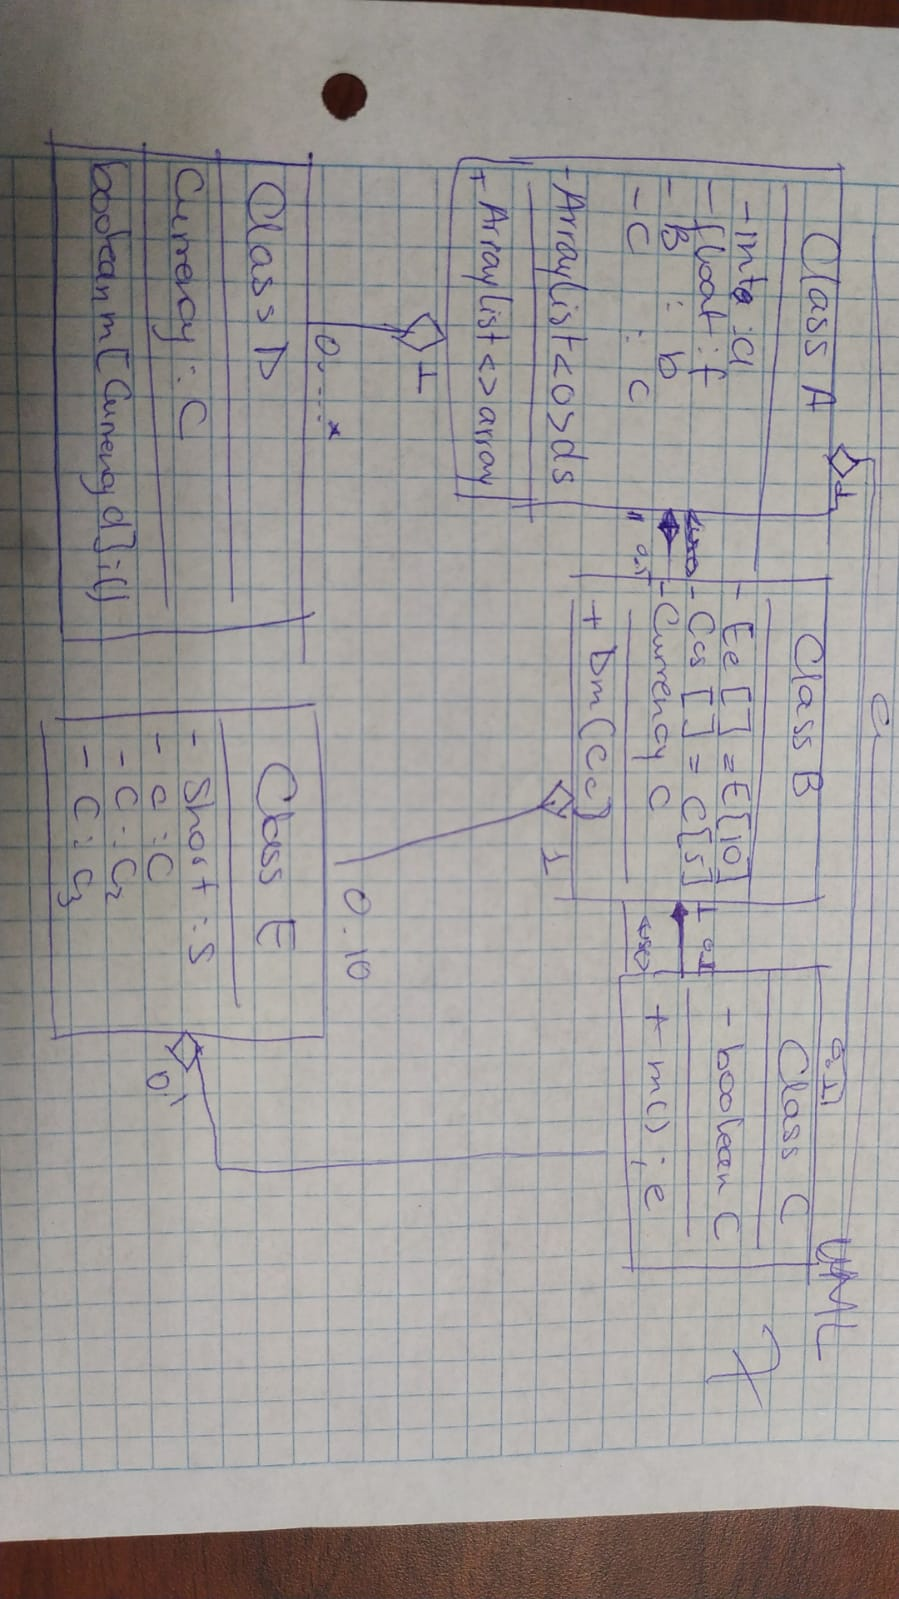 UML
7
Class A
- int : a
- float : f
- B : b
- C : c
- Arraylist<O>ds
+ Arraylist<>array
1
1
"
0..1
Class B
- Ee[] = E[10]
- Cs[] = C[5]
- Currency C
+ Dm(Cc)
1
1
0..1
Class C
- boolean C
+ m() ; e
0..1
0....*
Class D
Currency : C
boolean m[Currency d] : ()
0.10
Class E
- Short : S
- c : C
- C : C2
- C : C3
0.1